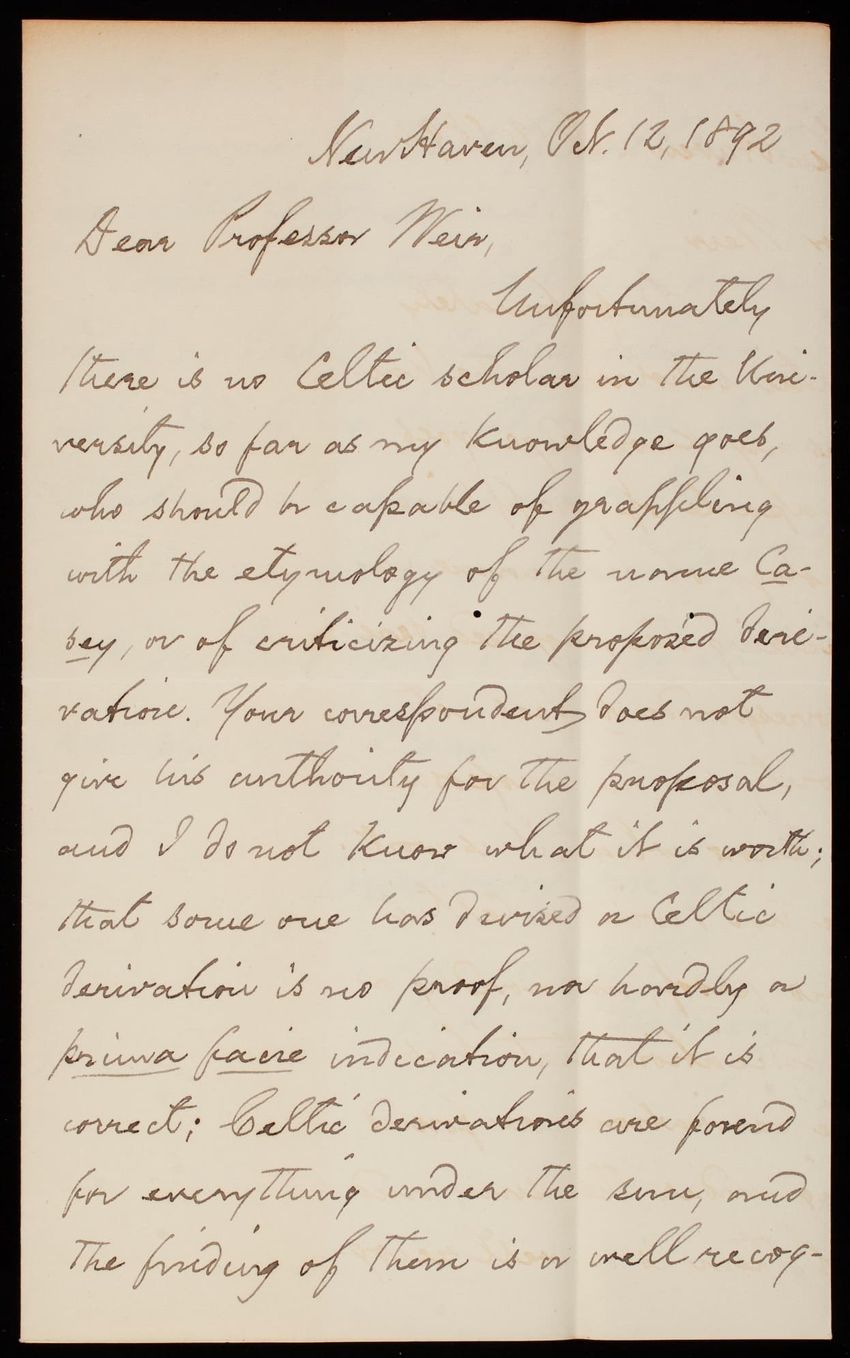 New Haven, Oct. 12, 1892
Dear Professor Weir,
Unfortunately
there is no Celtic scholar in the Uni-
versity, so far as my knowledge goes,
who should be capable of grappling
with the etymology of the name Ca-
sey, or of criticizing the proposed deri-
vation. Your correspondent does not
give his authority for the proposal,
and I do not know what it is worth;
that some one has devised a Celtic
derivation is no proof, nor hardly a
prima facie indication, that it is
correct; Celtic derivations are found
for everything under the sun, and
the finding of them is a well recog-